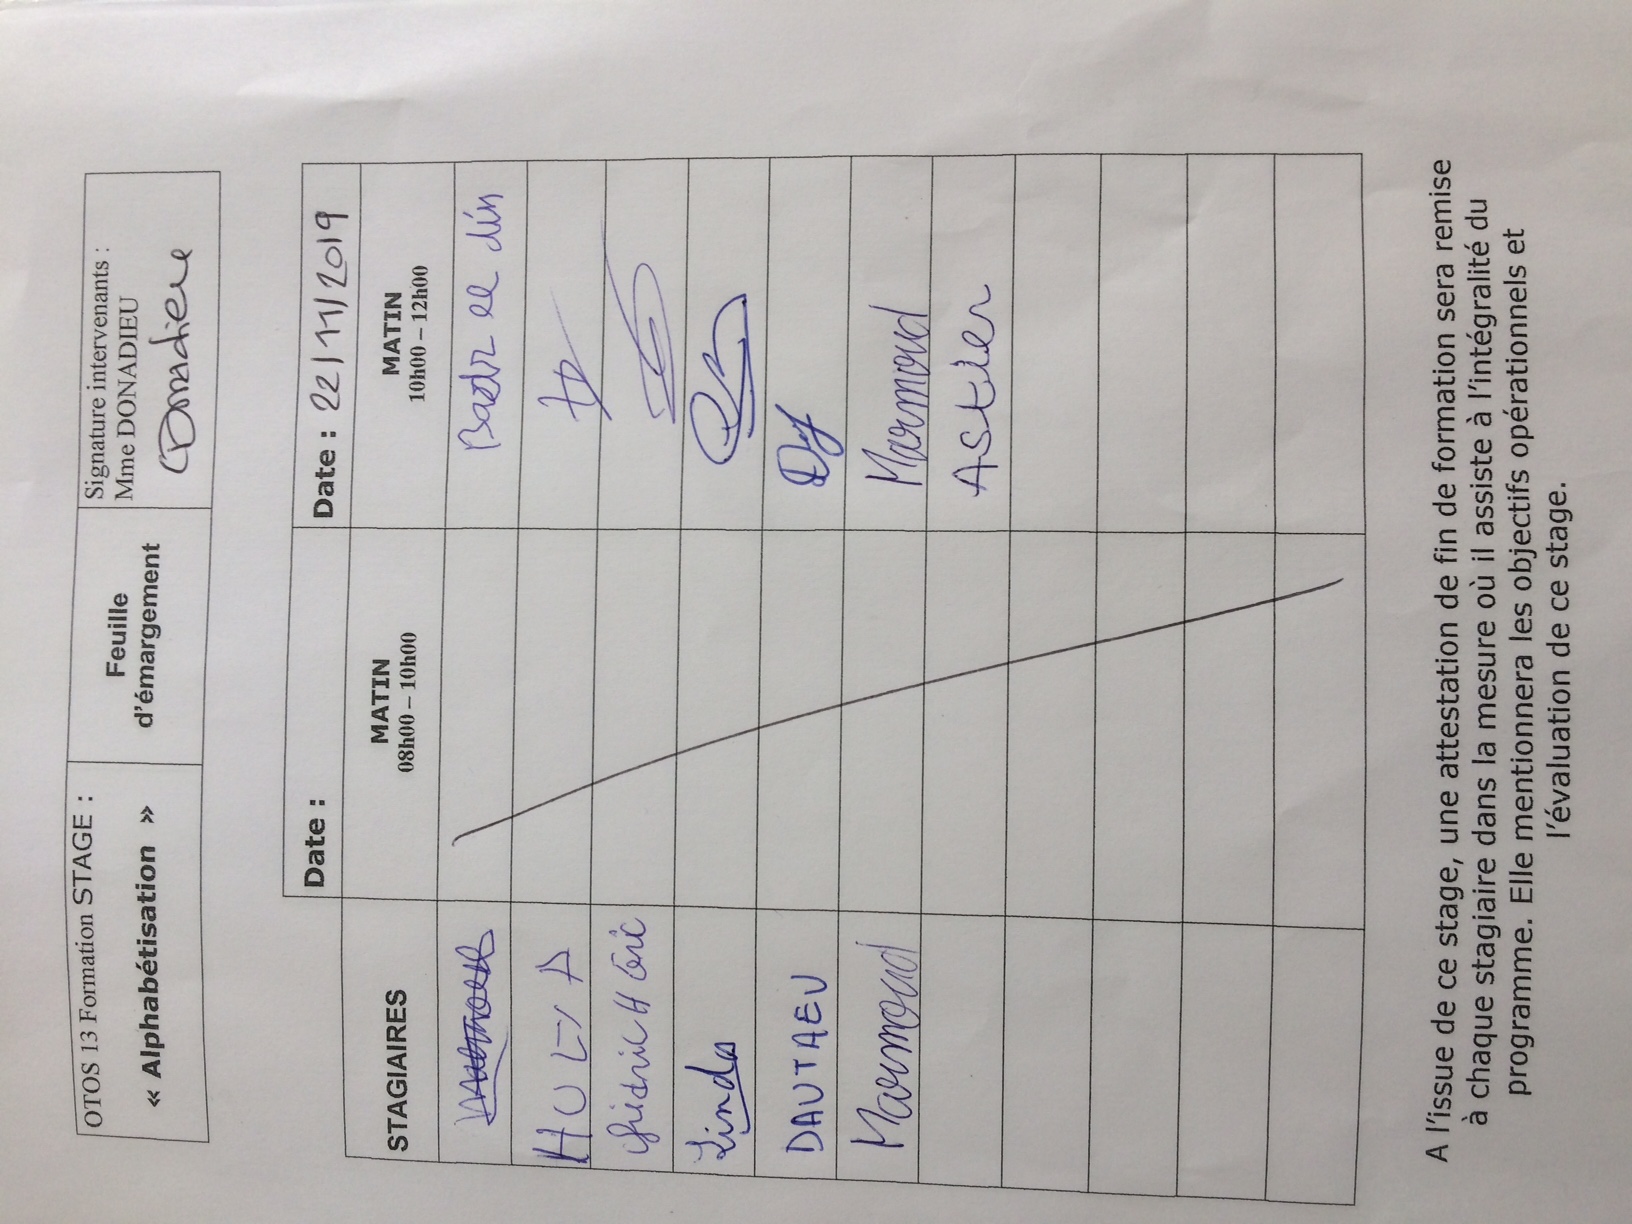 OTOS 13 Formation STAGE :
« Alphabétisation »
Feuille
d'émargement
Signature intervenants :
Mme DONADIEU
Donadieu
Date :
Date : 22/11/2019
STAGIAIRES
MATIN
08h00 – 10h00
MATIN
10h00 – 12h00
Badr ee din
HULYA
Linda
DAUTAEV
Marmoud
Marmoud
AStier
A l'issue de ce stage, une attestation de fin de formation sera remise
à chaque stagiaire dans la mesure où il assiste à l'intégralité du
programme. Elle mentionnera les objectifs opérationnels et
l'évaluation de ce stage.